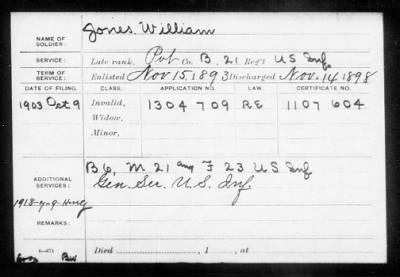 Jones, William
NAME OF SOLDIER:
SERVICE: Late rank, Pvt Co. B, 21 Reg't US Inf.
TERM OF SERVICE: Enlisted Nov 15, 1893 Discharged Nov. 14, 1898
DATE OF FILING. CLASS. APPLICATION NO. LAW. CERTIFICATE NO.
1903 Oct 9 Invalid, 1304709 RE 1107604
Widow,
Minor,
ADDITIONAL SERVICES: B 6, M 21 and F 23 US Inf
Gen. Ser. U.S. Inf.
REMARKS:
Died , 1 , at